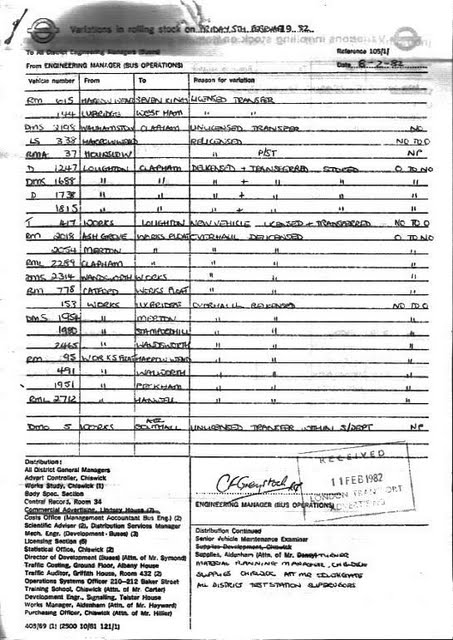 Variations in rolling stock on FRIDAY 5TH FEBRUARY 19 82
To All District Engineering Managers (Buses)
Reference 105/1/
From ENGINEERING MANAGER (BUS OPERATIONS)
Date 8-2-82
Vehicle number From To Reason for variation
RM 615 HARROW WEALD SEVEN KINGS LICENSED TRANSFER
144 UXBRIDGE WEST HAM " "
DMS 2195 WALTHAMSTOW CLAPHAM UNLICENSED TRANSFER NO
LS 338 HARROW WEALD RELICENSED NO TO O
RMA 37 HOUNSLOW " P/ST NP
D 1247 LOUGHTON CLAPHAM DELICENSED + TRANSFERRED STORED O TO NO
DMS 1688 " " " + " " "
D 1738 " " " + " " "
1815 " " " + " " "
T 417 WORKS LOUGHTON NEW VEHICLE LICENSED + TRANSFERRED NO TO O
RM 2018 ASH GROVE WORKS FLOAT OVERHAUL DELICENSED O TO NO
2054 MERTON " " " "
RML 2289 CLAPHAM " " " "
DMS 2314 WANDSWORTH WORKS " " "
RM 778 CATFORD WORKS FLOAT " " "
153 WORKS UXBRIDGE OVERHAUL RELICENSED NO TO O
DMS 1954 " MERTON " " "
1980 " STAMFORD HILL " " "
2465 " WANDSWORTH " " "
RM 95 WORKS FLOAT HARROW WEALD " " "
491 " WALWORTH " " "
1951 " PECKHAM " " "
RML 2712 " HANWELL " " "
DMO 5 WORKS SOUTHALL UNLICENSED TRANSFER WITHIN S/DEPT NP
Distribution:
All District General Managers
Advert Controller, Chiswick
Works Study, Chiswick (1)
Body Spec. Section
Control Record, Room 34
Commercial Advertising, Lindsey House (2)
Costs Office (Management Accountant Bus Eng.) (2)
Scientific Adviser (2), Distribution Services Manager
Mech. Engr. (Development - Buses) (3)
Licensing Section (6)
Statistical Office, Chiswick (2)
Director of Development (Buses) (Attn. of Mr. Symond)
Traffic Costing, Ground Floor, Albany House
Traffic Auditor, Griffith House, Room 432 (2)
Operations Systems Officer 210–212 Baker Street
Training School, Chiswick (Attn. of Mr. Carter)
Development Engr., Signalling, Telstar House
Works Manager, Aldenham (Attn. of Mr. Hayward)
Purchasing Officer, Chiswick (Attn. of Mr. Hillier)
405/69 (1) (2500 10/81 121/1)
RECEIVED
11 FEB 1982
LONDON TRANSPORT
ADVERTISING
ENGINEERING MANAGER (BUS OPERATIONS)
Distribution Continued
Senior Vehicle Maintenance Examiner
Supplies Development, Chiswick
Supplies, Aldenham (Attn. of Mr.
MATERIAL PLANNING MANAGER, CHISWICK
SUPPLIES CHISWICK ATT MR
ALL DISTRICT TEST STATION SUPERVISORS